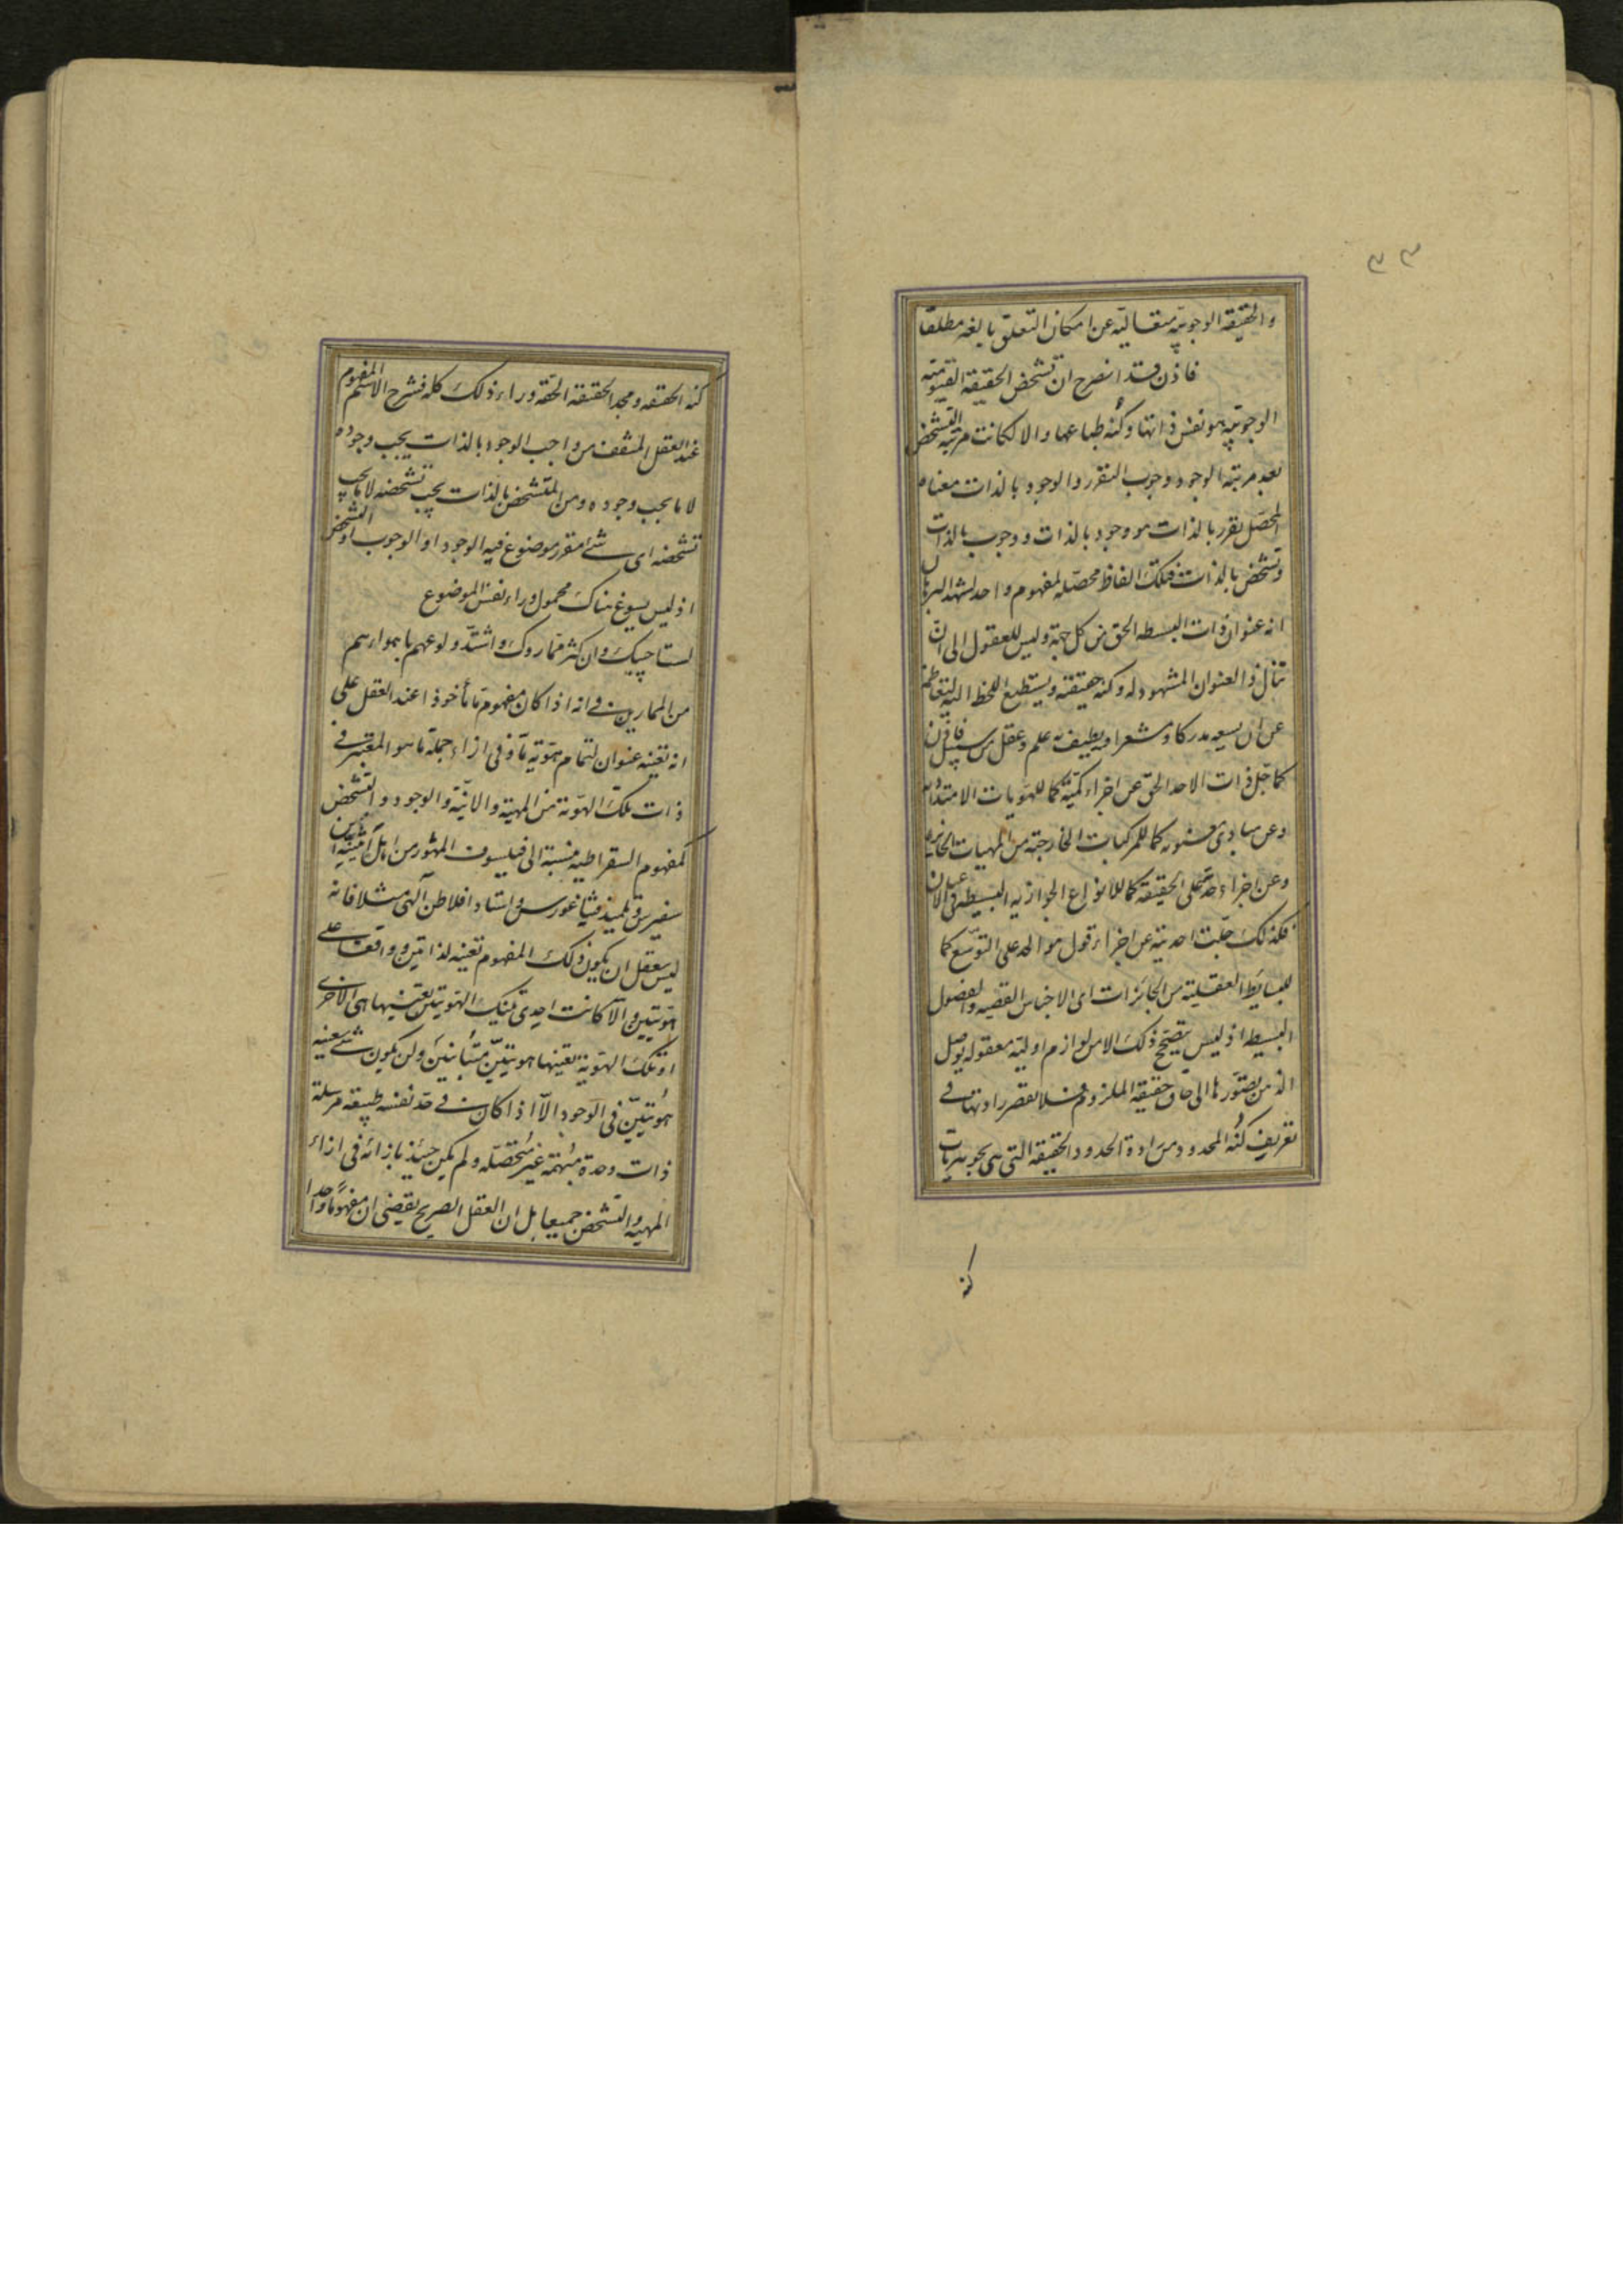 ٣٣
والحقيقه الوجوبيّه متعاليّه عن امكان التعلّق بالغير مطلقا
فاذن قد انصرح ان تشخص الحقيقه القيّوميّه
الوجوبيّه هو نفس ذاتها وكُنه طباعها والا لكانت مرتبة التشخّص
بعد مرتبة الوجود ووجوب التقرر والوجود بالذات معناه
المحصّل تقرر بالذات هو وجود بالذات ووجوب بالذات
وتشخص بالذات فتلك الفاظ محصّله لمفهوم واحد يشهد البرهان
انه عنوان ذات البسيطه الحق من كل جهة وليس للعقول الى ان
تنال ذا العنوان المشهود له وكنه حقيقته ويستطيع اللحظ اليه
عن ان يسعه مدرك او مشعر او يطيف به علم وعقل من سبيل فاذن
كما جلّ ذات الاحد الحق عن اجزاء كمّيّة كما للهويات الامتداديه
وعن مبادئ كما للمركبات الخارجيّة من المهيات الجائزه
وعن اجزاء حدّ على الحقيقة كما للانواع الجوازيه البسيطه في الاعيان
فكذلك جلّت احديته عن اجزاء قول هو الحد على التوسّع كما
للبسايط العقليّة من الجائزات اى الاجناس القصيه والفصول
البسيطه اذ ليس يصحّح ذلك الا من لوازم اوليّه معقوله يوصل
الذهن تصوّرها الى حاق حقيقة الملزوم فلا تقصر رادتها في
تعريف كُنه المحدود من رادة الحدود والحقيقه التى هى بجوهريات
كنه
كنه الحقيقه ومجد الحقيقة الحقه وراء ذلك كله فشرح الاسم المفهوم
عند العقل المثقف من واجب الوجود بالذات يجب وجوده
لا ما يجب وجوده ومن المتشخص بالذات يجب تشخصه لا ما يجب
تشخصه اى شئ متقرر موضوع فيه الوجود او الوجوب او التشخص
اذ ليس يسوغ هناك محمول وراء نفس الموضوع
لستَ احسبك وان كثر ممّا روك واشتدّ ولوعهم بالمراء
من الممارين في انه اذا كان مفهوم ما مأخوذا عند العقل على
انه بعينه عنوان لتمام هويّة ما وفى ازاء جملة ما هو المعتبر في
ذات تلك الهويّة من المهية والانيّة والوجود والتشخص
كمفهوم السقراطيه منسبة الى فيلسوف المشهور من اهل اثينيه ابن
سفرس وتلميذ فيثاغورس واستاد افلاطن الالهى مثلا فانه
ليس يعقل ان يكون ذلك المفهوم بعينه لذاتين وواقعا على
هويّتين والا كانت احدى تينك الهويتين بعينها هى الاخرى
او تلك الهويّة بعينها هويتيّن متبائنينَ ولن يكون شئ بعينه
هويّتيّن في الوجود الا اذا كان في حدّ نفسه طبيعة مرسلة
ذات وحدة مبُهمة غير محُصّله ولم يكن حينئذ بازائه فى ازاء
المهيه والتشخص جميعا بل ان العقل الصريح يقضى ان مفهومًا واحدا